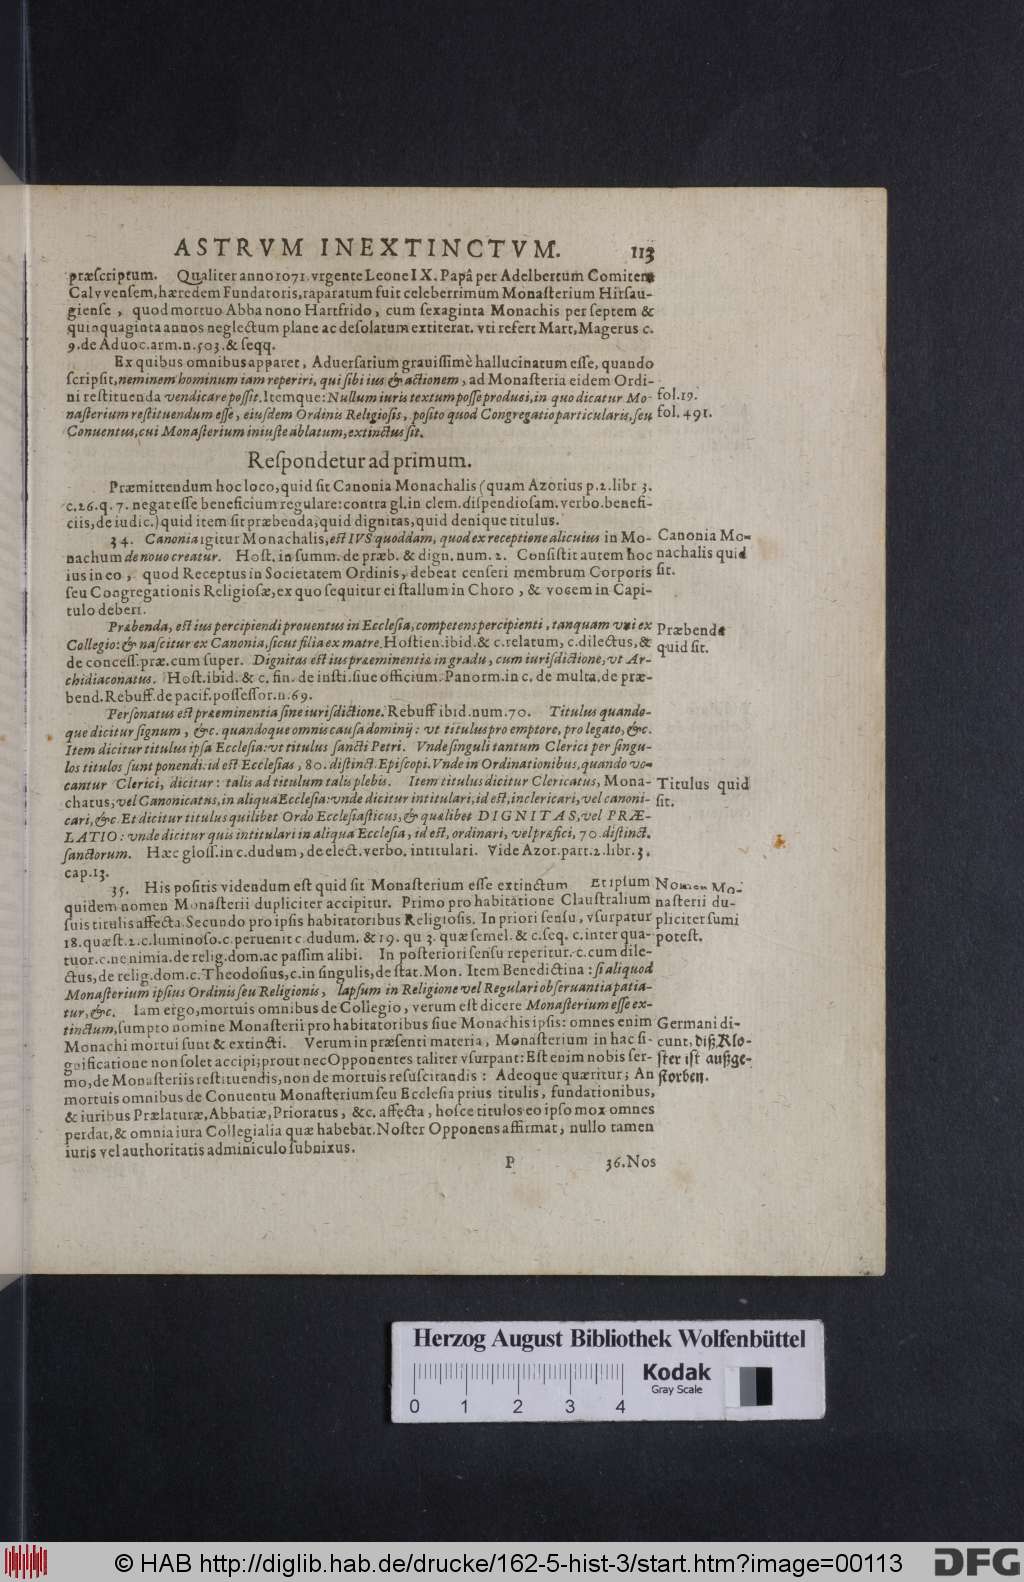 ASTRVM INEXTINCTVM. 113
præſcriptum. Qualiter anno 1071. vrgente Leone IX. Papâ per Adelbertum Comitem
Calvvenſem, hæredem Fundatoris, raparatum fuit celeberrimum Monaſterium Hirſau-
gienſe, quod mortuo Abba nono Hartfrido, cum ſexaginta Monachis per ſeptem &
quinquaginta annos neglectum plane ac deſolatum extiterat. vti refert Mart. Magerus c.
9. de Aduoc. arm. n. 503. & ſeqq.
Ex quibus omnibus apparet, Aduerſarium grauiſſimè hallucinatum eſſe, quando
ſcripſit, neminem hominum iam reperiri, qui ſibi ius & actionem, ad Monaſteria eidem Ordi-
ni reſtituenda vendicare poſſit. Itemque: Nullum iuris textum poſſe produci, in quo dicatur Mo- fol. 19.
naſterium reſtituendum eſſe, eiuſdem Ordinis Religioſis, poſito quod Congregatio particularis, ſeu fol. 491.
Conuentus, cui Monaſterium iniuſte ablatum, extinctus ſit.
Reſpondetur ad primum.
Præmittendum hoc loco, quid ſit Canonia Monachalis (quam Azorius p. 2. libr 3.
c. 26. q. 7. negat eſſe beneficium regulare: contra gl. in clem. diſpendioſam. verbo. benefi-
ciis, de iudic.) quid item ſit præbenda, quid dignitas, quid denique titulus.
34. Canonia igitur Monachalis, eſt IVS quoddam, quod ex receptione alicuius in Mo- Canonia Mo-
nachum de nouo creatur. Hoſt. in ſumm. de præb. & dign. num. 2. Conſiſtit autem hoc nachalis quid
ius in eo, quod Receptus in Societatem Ordinis, debeat cenſeri membrum Corporis ſit.
ſeu Congregationis Religioſæ, ex quo ſequitur ei ſtallum in Choro, & vocem in Capi-
tulo deberi.
Præbenda, eſt ius percipiendi prouentus in Eccleſia, competens percipienti, tanquam vni ex Præbenda
Collegio: & naſcitur ex Canonia, ſicut filia ex matre. Hoſtien. ibid. & c. relatum, c. dilectus, & quid ſit.
de conceſſ. præ. cum ſuper. Dignitas eſt ius præeminentiæ in gradu, cum iuriſdictione, vt Ar-
chidiaconatus. Hoſt. ibid. & c. fin. de inſti. ſiue officium. Panorm. in c. de multa, de præ-
bend. Rebuff. de pacif. poſſeſſor. n. 69.
Perſonatus eſt præeminentia ſine iuriſdictione. Rebuff ibid. num. 70. Titulus quando-
que dicitur ſignum, &c. quandoque omnis cauſa dominij: vt titulus pro emptore, pro legato, &c.
Item dicitur titulus ipſa Eccleſia: vt titulus ſancti Petri. Vnde ſinguli tantum Clerici per ſingu-
los titulos ſunt ponendi: id eſt Eccleſias, 80. diſtinct. Epiſcopi. Vnde in Ordinationibus, quando vo-
cantur Clerici, dicitur: talis ad titulum talis plebis. Item titulus dicitur Clericatus, Mona- Titulus quid
chatus, vel Canonicatus, in aliqua Eccleſia: vnde dicitur intitulari, id eſt, inclericari, vel canoni- ſit.
cari, &c. Et dicitur titulus quilibet Ordo Eccleſiaſticus, & quælibet DIGNITAS, vel PRÆ-
LATIO: vnde dicitur quis intitulari in aliqua Eccleſia, id eſt, ordinari, vel præfici, 70. diſtinct.
ſanctorum. Hæc gloſſ. in c. dudum, de elect. verbo. intitulari. Vide Azor. part. 2. libr. 3.
cap. 13.
35. His poſitis videndum eſt quid ſit Monaſterium eſſe extinctum Et ipſum Nomen Mo-
quidem nomen Monaſterii dupliciter accipitur. Primo pro habitatione Clauſtralium naſterii du-
ſuis titulis affecta. Secundo pro ipſis habitatoribus Religioſis. In priori ſenſu, vſurpatur pliciter ſumi
18. quæſt. 2. c. luminoſo. c. peruenit c. dudum. & 19. qu 3. quæ ſemel. & c. ſeq. c. inter qua- poteſt.
tuor. c. ne nimia. de relig. dom. ac paſſim alibi. In poſteriori ſenſu reperitur. c. cum dile-
ctus, de relig. dom. c. Theodoſius, c. in ſingulis, de ſtat. Mon. Item Benedictina: ſi aliquod
Monaſterium ipſius Ordinis ſeu Religionis, lapſum in Religione vel Regulari obſeruantia patia-
tur, &c. Iam ergo, mortuis omnibus de Collegio, verum eſt dicere Monaſterium eſſe ex-
tinctum, ſumpto nomine Monaſterii pro habitatoribus ſiue Monachis ipſis: omnes enim Germani di-
Monachi mortui ſunt & extincti. Verum in præſenti materia, Monaſterium in hac ſi- cunt, diß Klo-
gnificatione non ſolet accipi; prout nec Opponentes taliter vſurpant: Eſt enim nobis ſer- ſter iſt außge-
mo, de Monaſteriis reſtituendis, non de mortuis reſuſcitandis: Adeoque quæritur; An ſtorben.
mortuis omnibus de Conuentu Monaſterium ſeu Eccleſia prius titulis, fundationibus,
& iuribus Prælaturæ, Abbatiæ, Prioratus, &c. affecta, hoſce titulos eo ipſo mox omnes
perdat, & omnia iura Collegialia quæ habebat. Noſter Opponens affirmat, nullo tamen
iuris vel authoritatis adminiculo ſubnixus.
P 36. Nos
Herzog August Bibliothek Wolfenbüttel
Kodak
Gray Scale
0 1 2 3 4
© HAB http://diglib.hab.de/drucke/162-5-hist-3/start.htm?image=00113
DFG